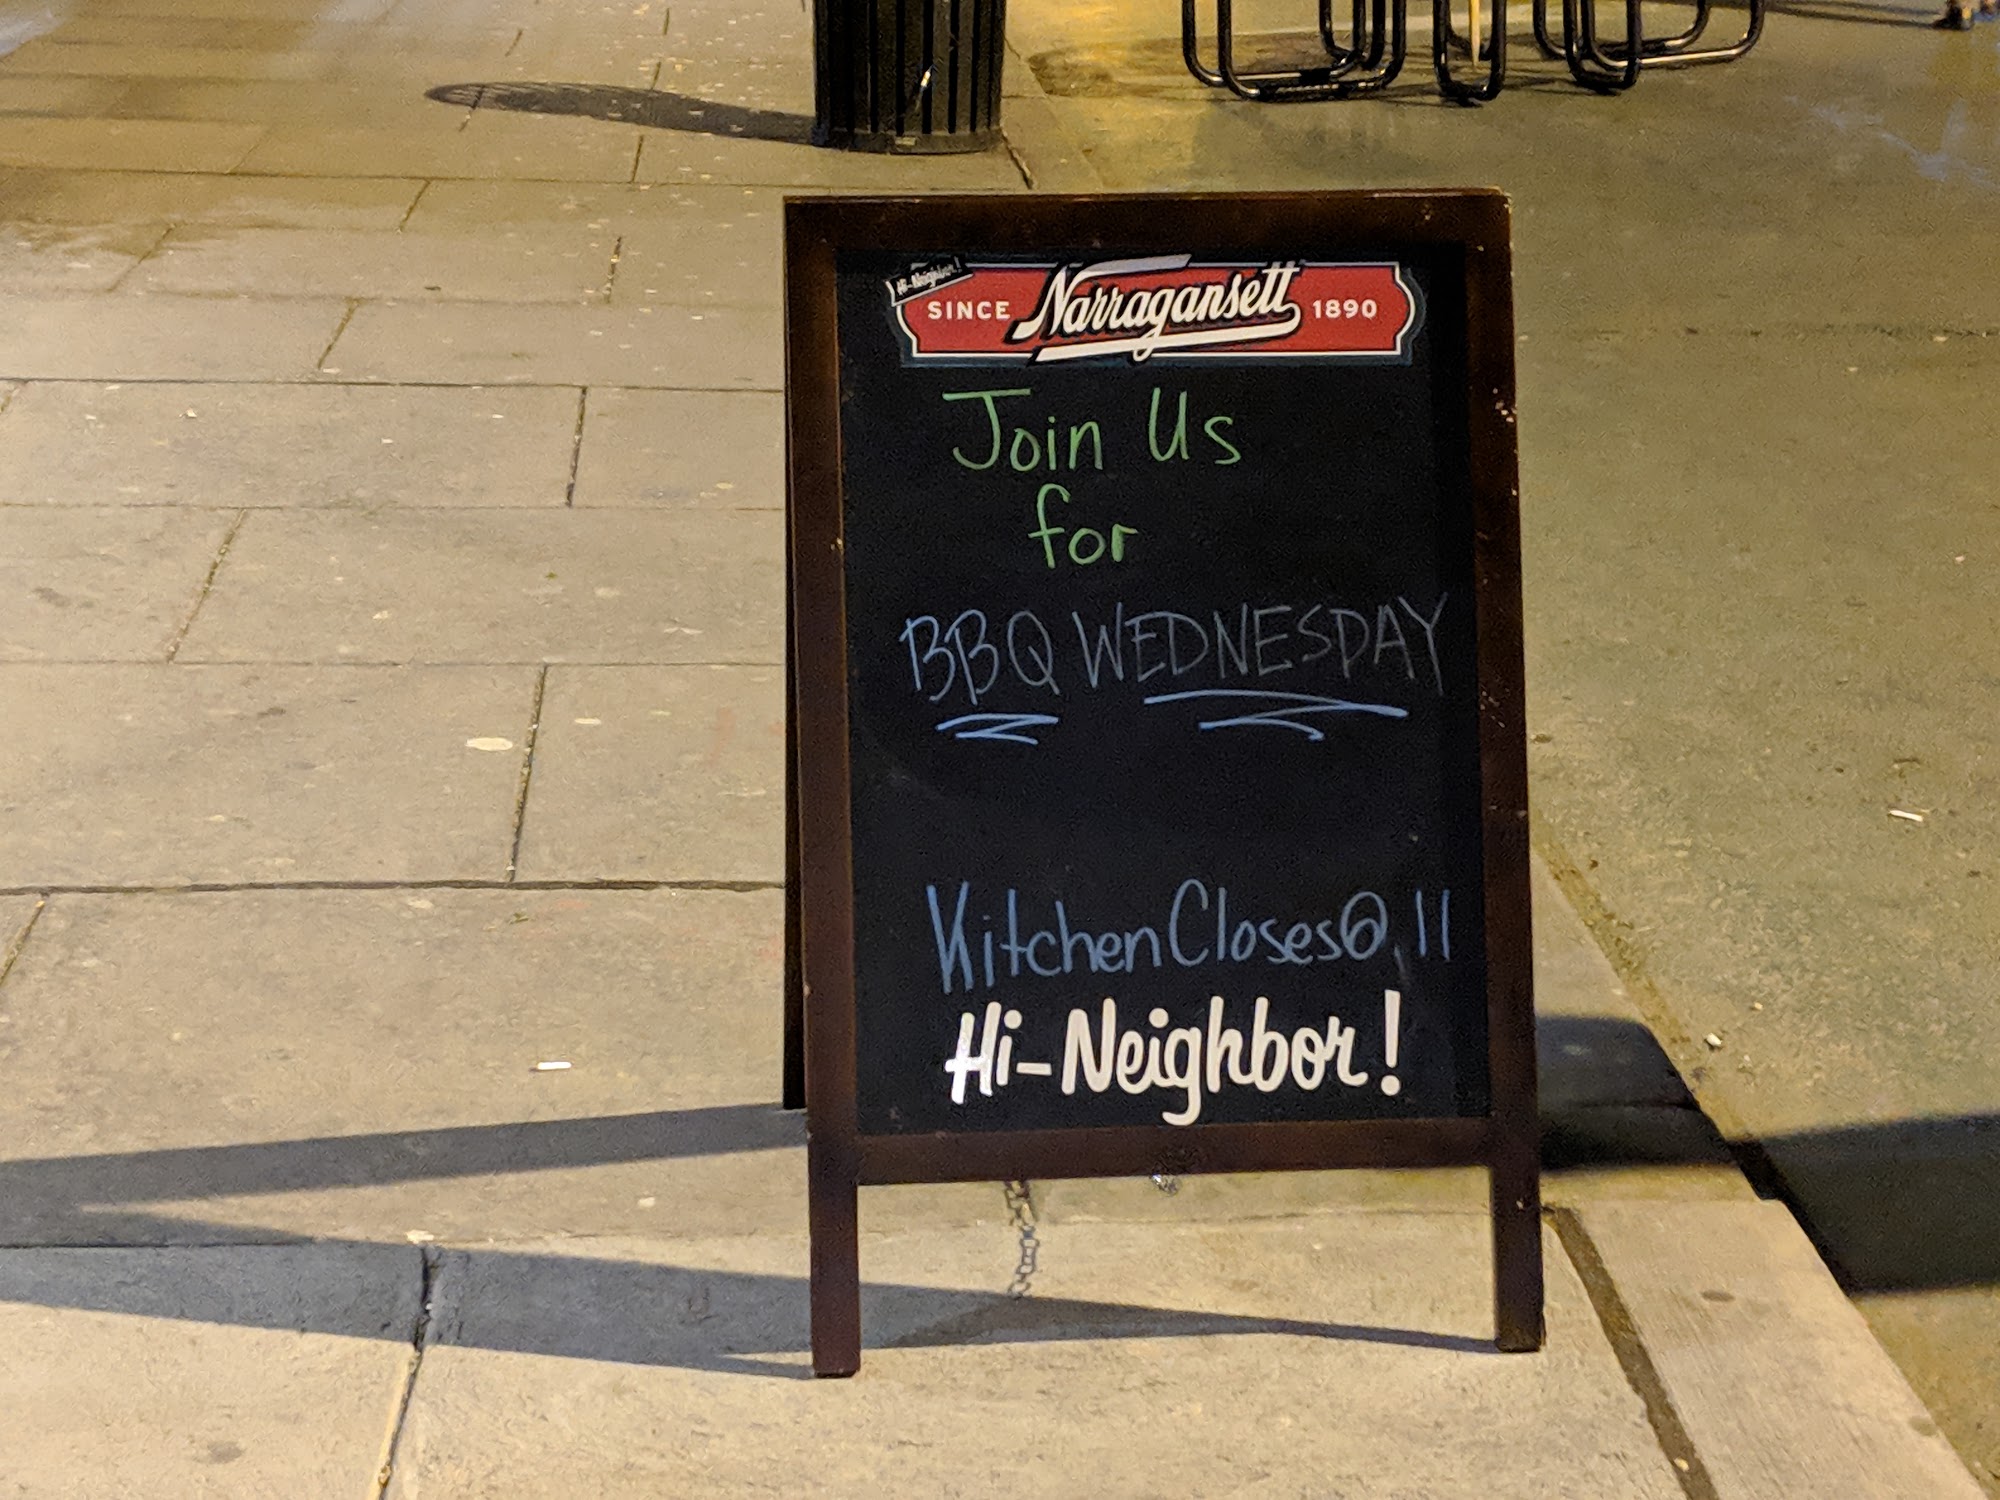 Hi-Neighbor!
SINCE Narragansett 1890
Join Us
for
BBQ WEDNESDAY
Kitchen Closes @ 11
Hi-Neighbor!